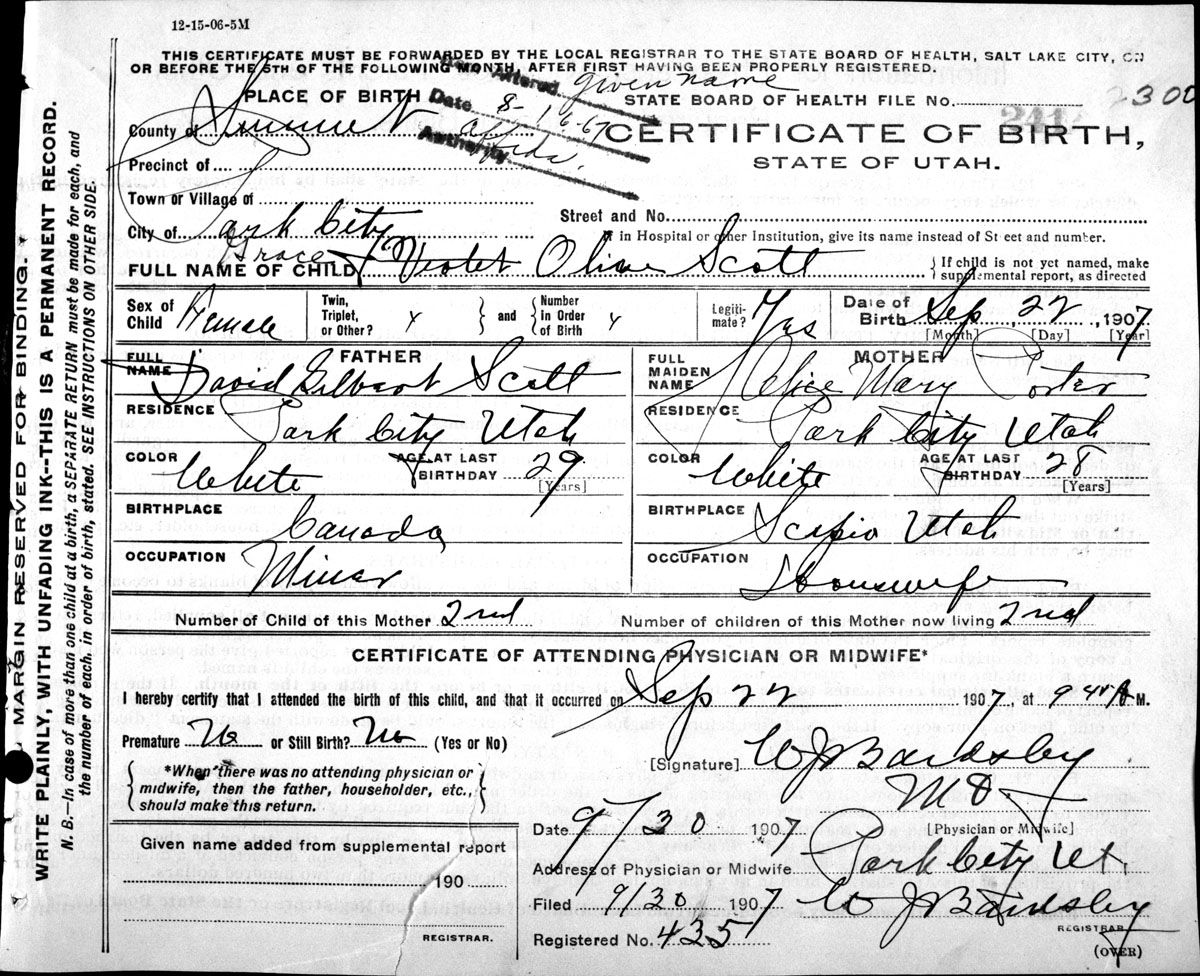 12-15-06-5M
THIS CERTIFICATE MUST BE FORWARDED BY THE LOCAL REGISTRAR TO THE STATE BOARD OF HEALTH, SALT LAKE CITY, ON
OR BEFORE THE 5TH OF THE FOLLOWING MONTH, AFTER FIRST HAVING BEEN PROPERLY REGISTERED.
Altered given name
Date 8-16-67
Authority
PLACE OF BIRTH
STATE BOARD OF HEALTH FILE No. 2300
County of Summit
CERTIFICATE OF BIRTH,
STATE OF UTAH.
Precinct of
Town or Village of
Street and No.
City of Park City
If in Hospital or other Institution, give its name instead of Street and number.
Grace
FULL NAME OF CHILD Violet Olive Scott
If child is not yet named, make supplemental report, as directed
Sex of Child Female Twin, Triplet, or Other? x and Number in Order of Birth x Legitimate? Yes Date of Birth Sep 22, 1907
[Month] [Day] [Year]
FATHER
FULL NAME David Gilbert Scott
RESIDENCE Park City Utah
COLOR White AGE AT LAST BIRTHDAY 29
[Years]
BIRTHPLACE Canada
OCCUPATION Miner
MOTHER
FULL MAIDEN NAME Alice Mary Porter
RESIDENCE Park City Utah
COLOR White AGE AT LAST BIRTHDAY 28
[Years]
BIRTHPLACE Scipio Utah
OCCUPATION Housewife
Number of Child of this Mother 2nd Number of children of this Mother now living 2nd
CERTIFICATE OF ATTENDING PHYSICIAN OR MIDWIFE*
I hereby certify that I attended the birth of this child, and that it occurred on Sep 22 1907 at 9 A M.
Premature No or Still Birth? No (Yes or No)
*When there was no attending physician or
midwife, then the father, householder, etc.,
should make this return.
[Signature] W J Bardsley
M D
[Physician or Midwife]
Date 9/30 1907
Address of Physician or Midwife Park City Ut.
Filed 9/30 1907 W J Bardsley
REGISTRAR
Registered No. 435
(OVER)
Given name added from supplemental report
190
REGISTRAR.
MARGIN RESERVED FOR BINDING.
WRITE PLAINLY, WITH UNFADING INK--THIS IS A PERMANENT RECORD.
N. B.--In case of more than one child at a birth, a SEPARATE RETURN must be made for each, and
the number of each, in order of birth, stated. SEE INSTRUCTIONS ON OTHER SIDE.